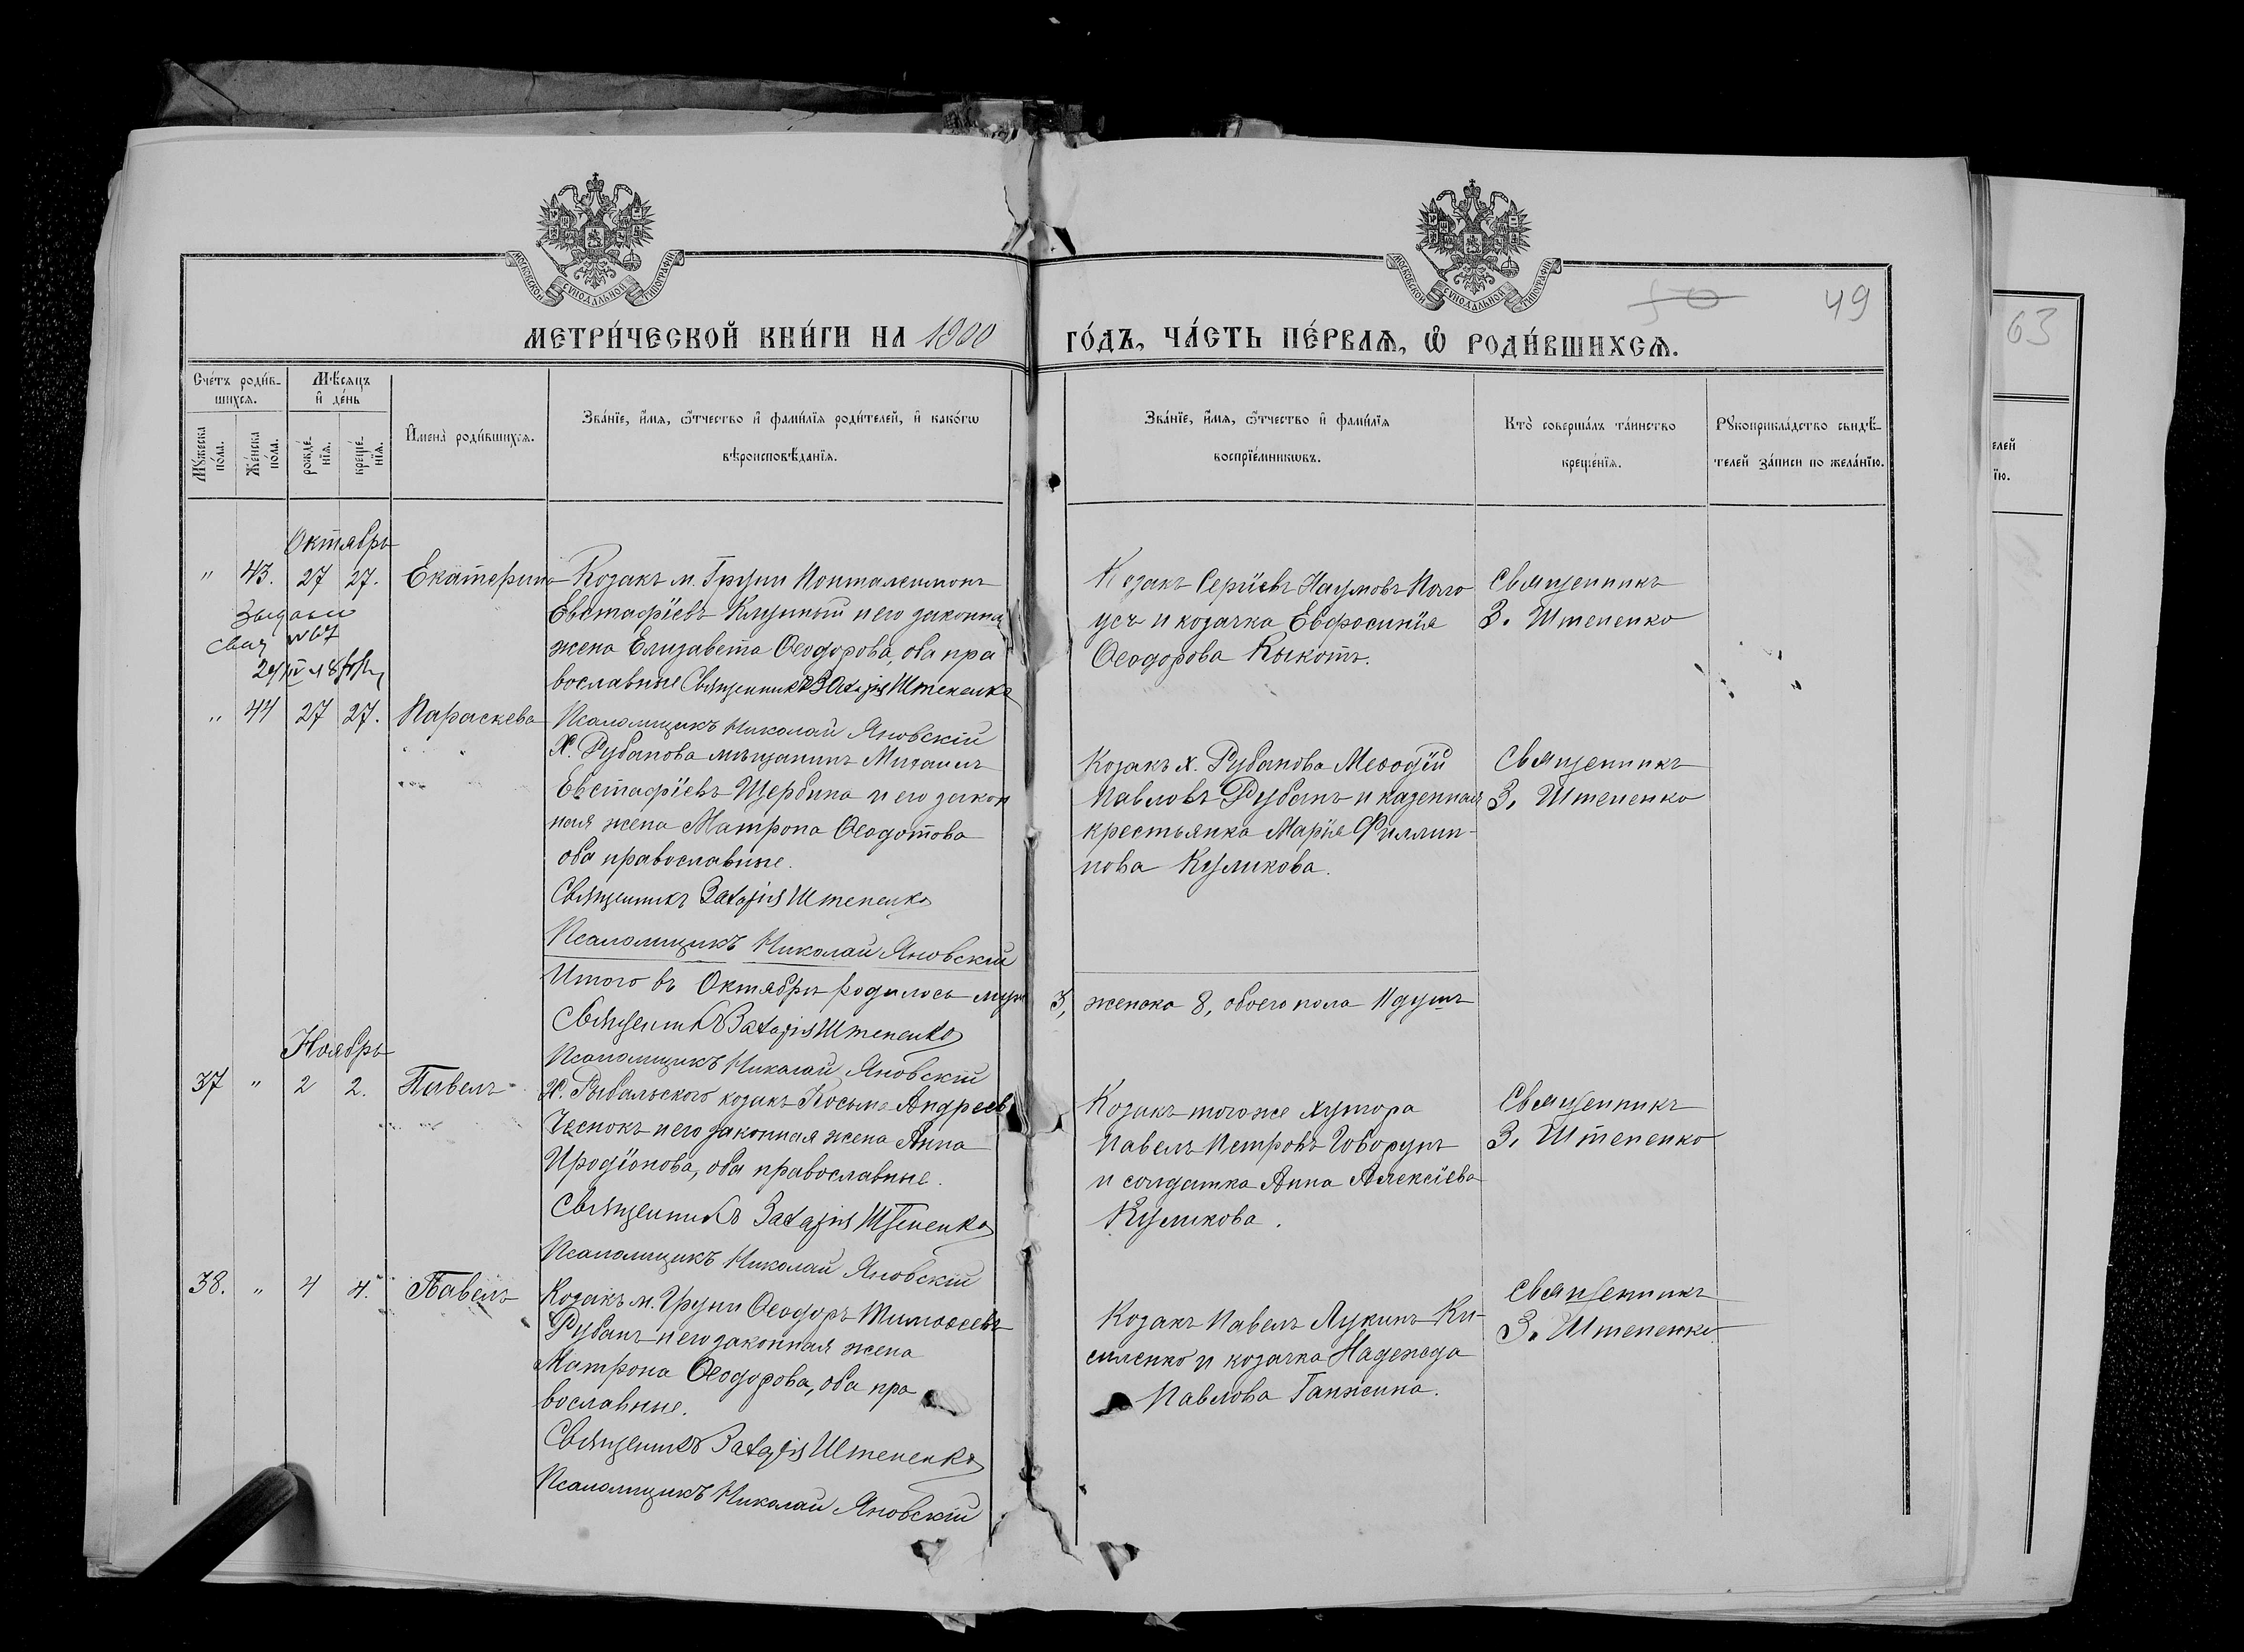 МОСКОВСКОЙ СУНОДАЛЬНОЙ ТИПОГРАФІИ
МОСКОВСКОЙ СУНОДАЛЬНОЙ ТИПОГРАФІИ
50 49
МЕТРИ́ЧЕСКОЙ КНИ́ГИ НА 1900 ГО́ДЪ, ЧА́СТЬ ПЕ́РВАѦ, Ѡ҆ РОДИ́ВШИХСѦ.
63
Сче́тъ роди́в-
шихсѧ.
Мѣ́сяцъ
и҆ де́нь
Мꙋ́жеска
по́ла.
Же́нска
по́ла.
рожде́-
нїѧ.
креще́-
нїѧ.
И҆мена̀ роди́вшихсѧ.
Зва́нїе, и҆́мѧ, ѻ҆́тчество и҆ фами́лїѧ роди́телей, и҆ како́гѡ
вѣроисповѣ́данїѧ.
Зва́нїе, и҆́мѧ, ѻ҆́тчество и҆ фами́лїѧ
воспрїе́мникѡвъ.
Кто̀ соверша́лъ та́инство
креще́нїѧ.
Рꙋкоприкла́дство свидѣ́-
телей за́писи по жела́нїю.
елей
їю.
Октябрь
" 43. 27 27. Екатерина
Козакъ м. Груни Понталеимонъ
Евстафіевъ Клуный и его законна
жена Елизавета Ѳеодорова, оба пра
вославные Священникъ Штепенко
Псаломщикъ Николай Яновскій
Козакъ Сергіевъ Наумовъ
усъ и козачка Евфросинія
Ѳеодорова Кыкотъ.
Священникъ
З. Штепенко
№ 67
" 44 27 27. Параскева
Х. Рубанова мѣщанинъ Михаилъ
Евстафіевъ Щербина и его закон
ная жена Матрона Ѳеодотова
оба православные.
Священникъ Штепенко
Псаломщикъ Николай Яновскій
Козакъ х. Рубанова Меѳодій
Павловъ Рубанъ и казенная
крестьянка Марія Филлип-
пова Куликова.
Священникъ
З. Штепенко
Итого въ Октябрѣ родилось муж 3, женска 8, обоего пола 11 душъ
Священникъ Штепенко
Псаломщикъ Николай Яновскій
Ноябрь
37 " 2 2. Павелъ
Х. Рыбальского козакъ Косьма Андреевъ
Чеснокъ и его законная жена Анна
Иродіонова, оба православные.
Священникъ Штепенко
Псаломщикъ Николай Яновскій
Козакъ того же хутора
Павелъ Петровъ Говорунъ
и солдатка Анна Алексіева
Куликова.
Священникъ
З. Штепенко
38. " 4 4. Павелъ
Козакъ м. Груни Ѳеодоръ Тимоѳеевъ
Рубанъ и его законная жена
Матрона Ѳеодорова, оба пра
вославные.
Священникъ Штепенко
Псаломщикъ Николай Яновскій
Козакъ Павелъ Лукинъ Ки-
силенко и козачка Надежда
Павлова Ганжина.
Священникъ
З. Штепенко